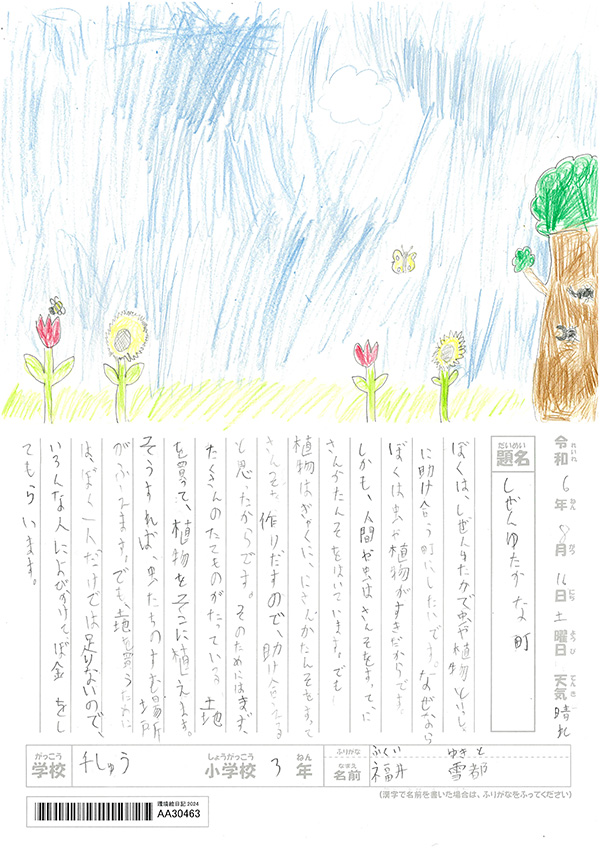 令和6年8月16日土曜日 天気 晴れ
れいわ ねん がつ にち ようび てんき
だいめい
題名 しぜんゆたかな町
ぼくは、しぜんゆたかで虫や植物といっしょ
に助け合う町にしたいです。なぜなら
ぼくは虫や植物がすきだからです。
しかも、人間や虫はさんそをすって、に
さんかたんそをはいています。でも
植物はぎゃくに、にさんかたんそをすって
さんそを作りだすので、助け合える
と思ったからです。そのためにはまず、
たくさんのたてものがたっている土地
を買って、植物をそこに植えます。
そうすれば、虫たちのすむ場所
がふえます。でも、土地を買うために
は、ぼく一人だけでは足りないので、
いろんな人によびかけてぼ金をし
てもらいます。
がっこう
学校 千しゅう
しょうがっこう ねん
小学校 3年
ふりがな ふくい ゆきと
なまえ
名前 福井 雪都
(漢字で名前を書いた場合は、ふりがなをふってください)
環境絵日記 2024
AA30463